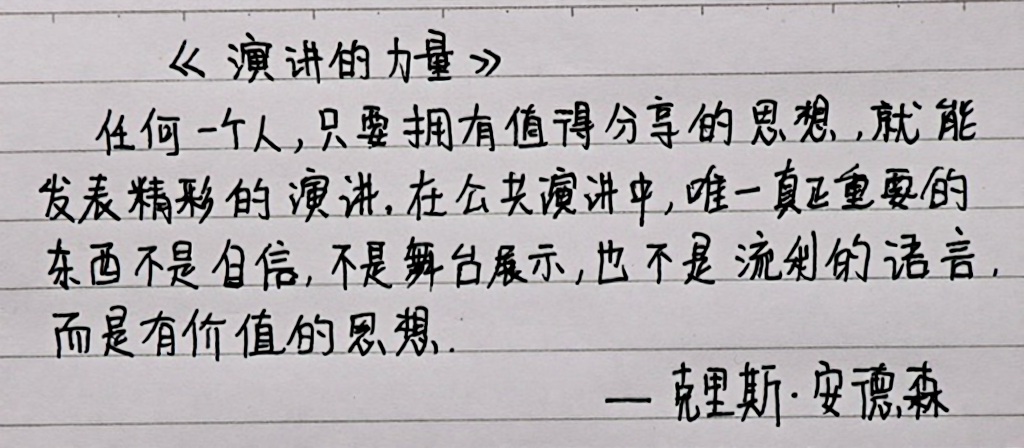 《演讲的力量》
任何一个人,只要拥有值得分享的思想,就能
发表精彩的演讲.在公共演讲中,唯一真正重要的
东西不是自信,不是舞台展示,也不是流利的语言.
而是有价值的思想.
—克里斯·安德森